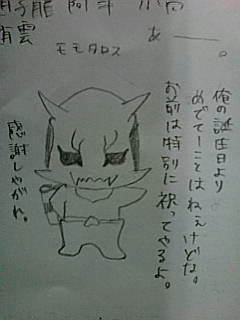 子龍 阿斗
雲
あーー。
モモタロス
俺の誕生日より
めでてーことはねぇけどな。
お前は特別に祝ってやるよ。
感謝しやがれ。